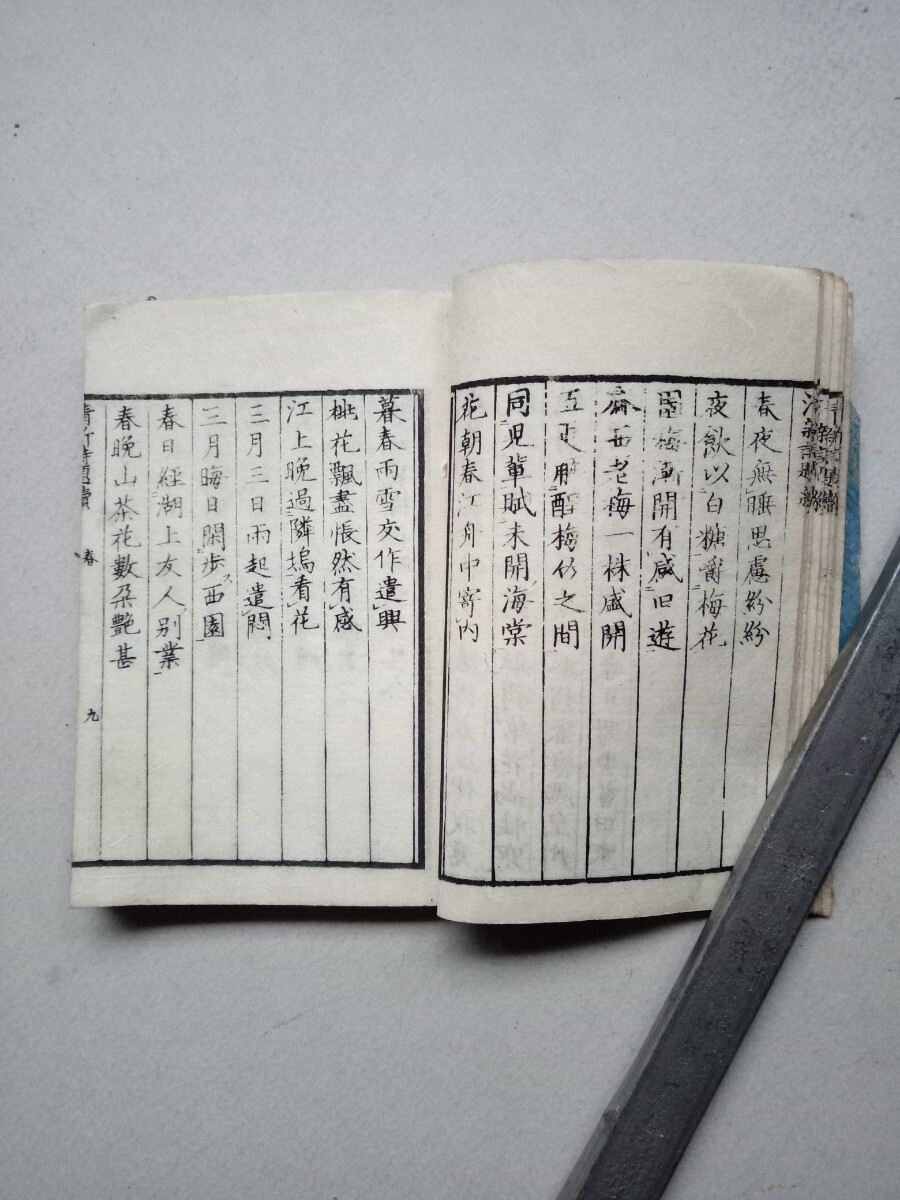 春夜無睡思慮紛紛
夜飲以白糖嚼梅花
園梅漸開有感旧遊
齋西老梅一株盛開
五更酲梅竹之間
同児輩賦未開海棠
花朝春江舟中寄内
暮春雨雪交作遣興
桃花飄盡悵然有感
江上晚過隣塢看花
三月三日雨起遣悶
三月晦日閑步西園
春日經湖上友人別業
春晚山茶花數朶艶甚
清新詩題續
春
九